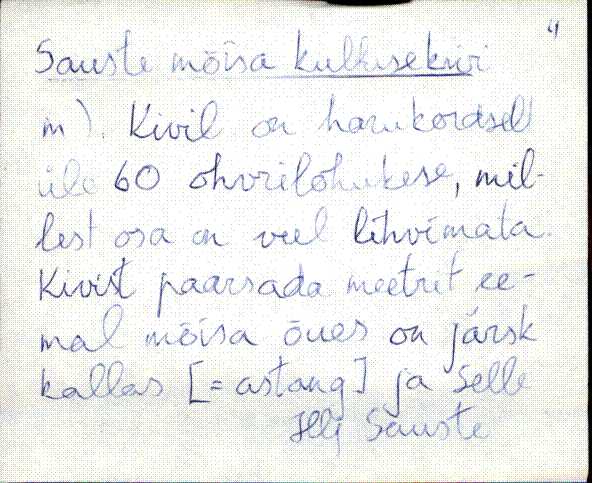 4
Sauste mõisa kultusekivi
m). Kivil on harukordselt
üle 60 ohvrilohukese, mil-
lest osa on veel lihvimata.
Kivist paarsada meetrit ee-
mal mõisa õues on järsk
kallas [= astang] ja selle
Hlj Sauste